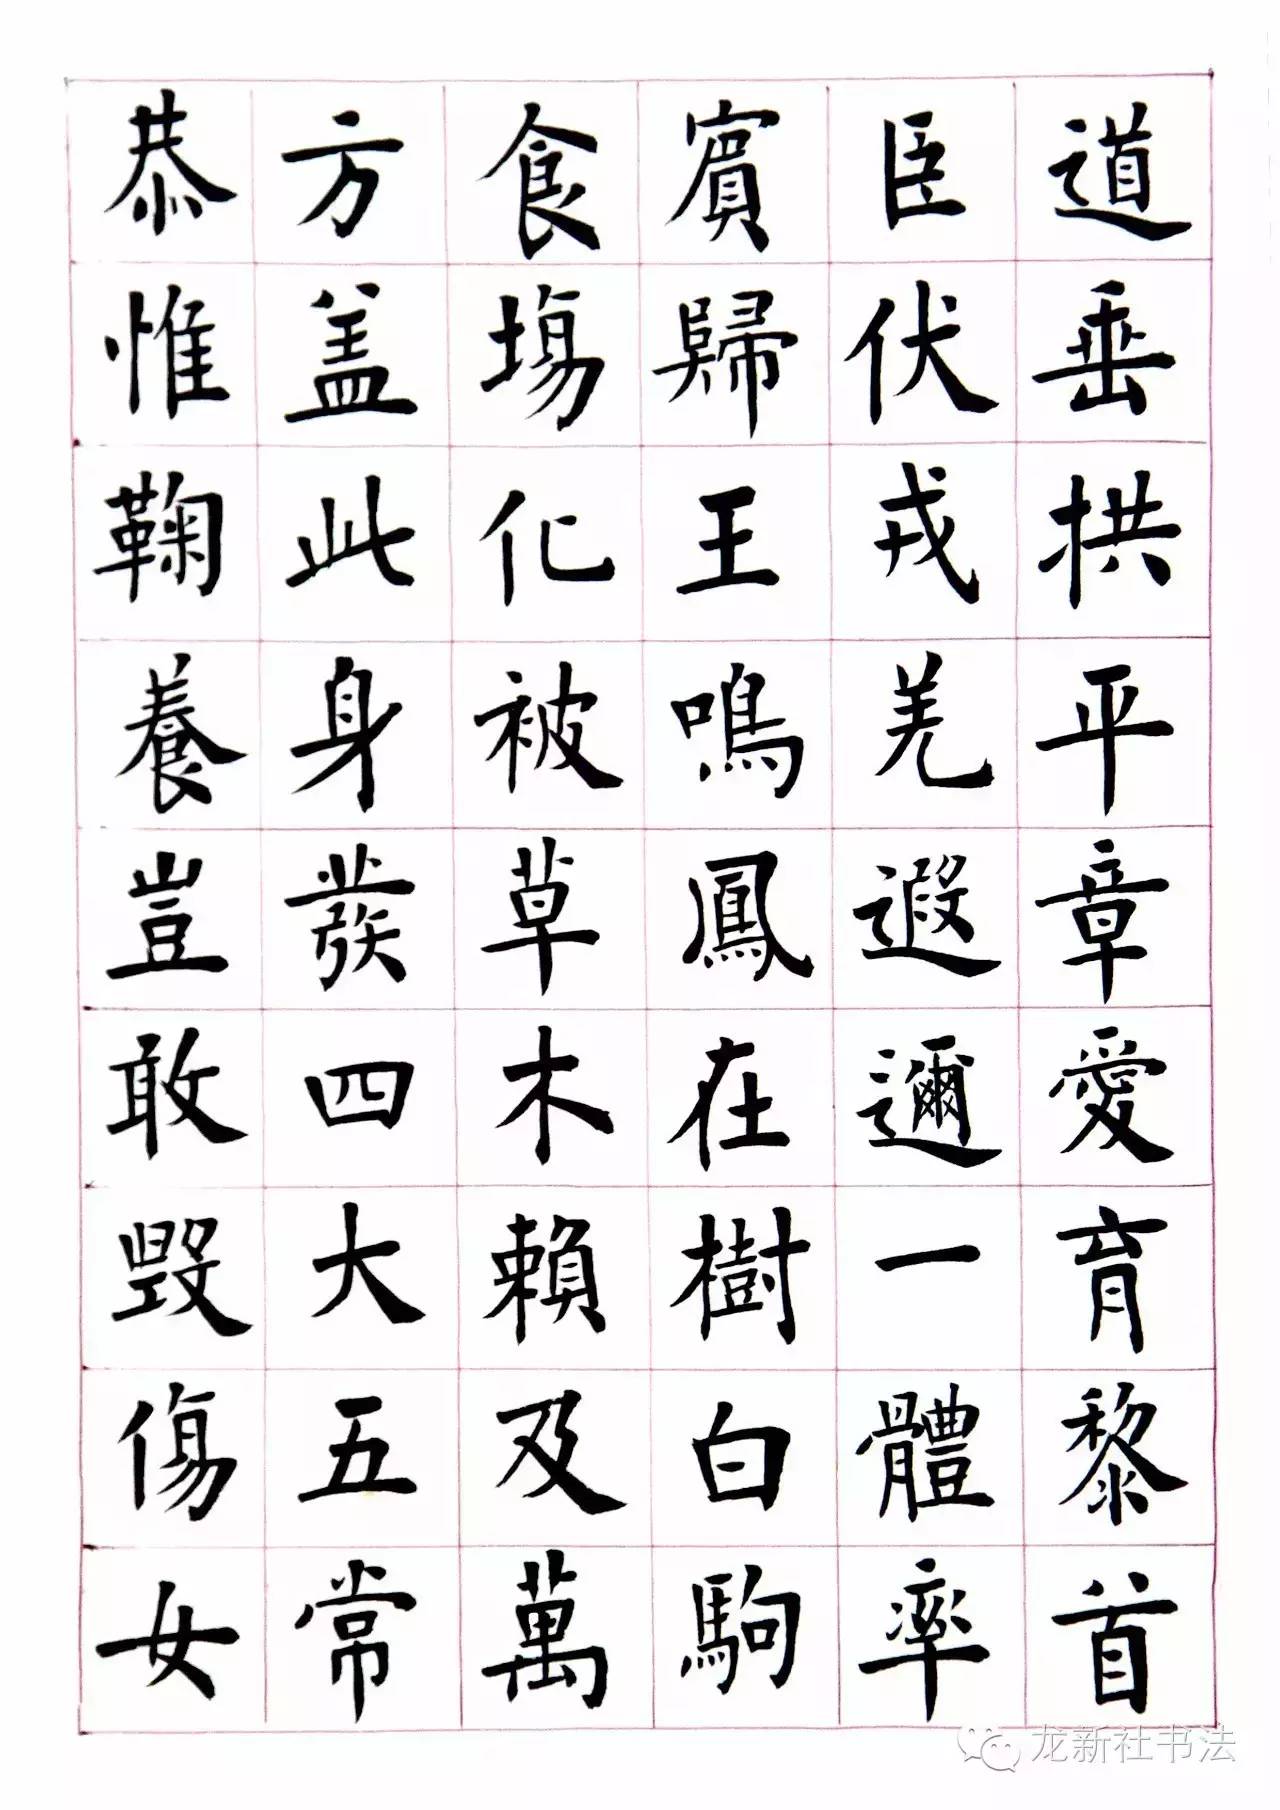 道垂拱平章愛育黎首
臣伏戎羌遐邇一體率
賓歸王鳴鳳在樹白駒
食場化被草木賴及萬
方盖此身發四大五常
恭惟鞠養豈敢毀傷女
龙新社书法